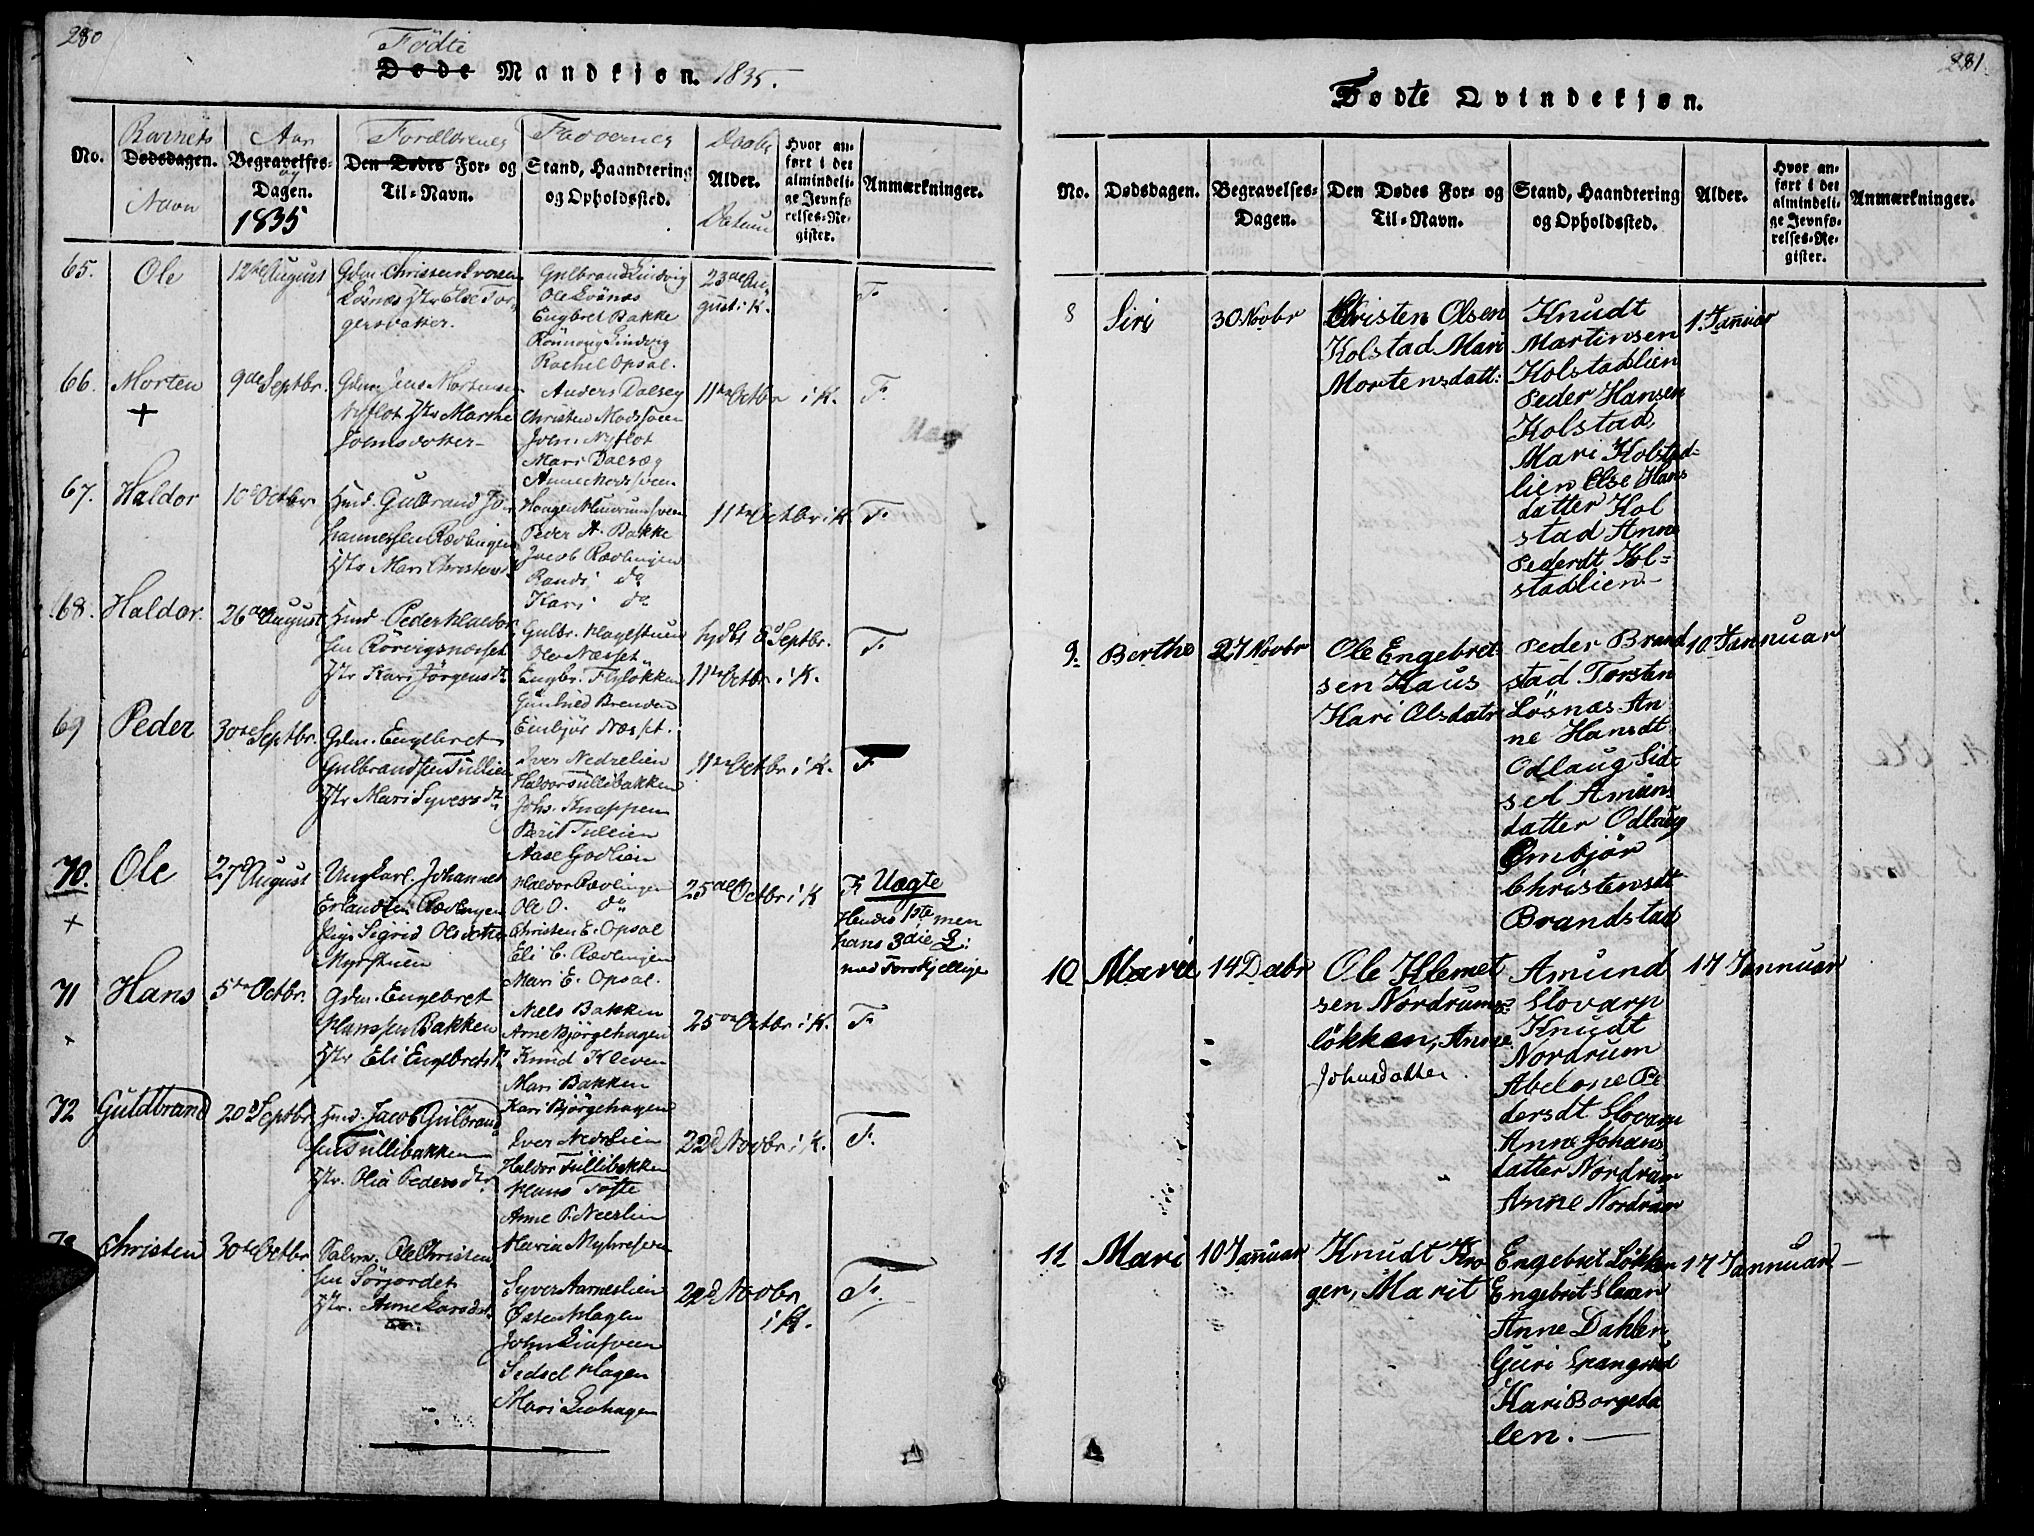 280
Födte
Døde Mandkjøn. 1835.
No.
Barnets
Dødsdagen.
Navn
Aar
Begravelses-
og
Dagen.
1835
Forældrenes
Den Dødes For- og
Til-Navn.
Faddernes
Stand, Haandtering
og Opholdssted.
Daabs
Alder.
Datum
Hvor an-
ført i det
almindeli-
ge Jevnfø-
relses-Re-
gister.
Anmærkninger.
65.
Ole
12te August
Gdm. Christen Iversen
Lösnæs Hstr Else Tor-
gersdatter.
Gulbrand Lindvig
Ole Lösnæs
Engbret Bakke
Rönnoug Lindvig
Rachel Opsal.
23de Au-
gust i K.
F.
66.
Morten
+
9de Septbr.
Gdm. Jens Mortensen
Nyflot Hstr Marthe
Johnsdatter
Anders Dalseg
Christen Modsveen
John Nyflot
Mari Dalseg
Anne Modsveen
11te Octbr i K.
F.
67.
Haldor
10de Octbr.
Hmd. Gulbrand Jo-
hannessen Rævlingen
Hstr Mari Christensd.
Peder A. Bakke
Jacob Rævlingen
Randi do
Kari do
11te Octbr i K
F.
68.
Haldor.
26de August
Hmd Peder Haldor-
sen Rörvigsnæsset
Hstr Kari Jörgensdr
Gulbr. Hagestuen
Ole Næsset
Engbr. Flyløkken
Gunhild Brenden
Embjör Næsset.
hjdbt 6d Septbr.
11te Octbr i K.
F.
69
Peder
30te Septbr.
Gdm. Engebret
Gulbrandsen Tullien
Hstr Mari Syversdr
Iver Nedrelien
Haldor Tullibakken
Johs. Knappen
Berit Tullien
Aase Godlien
11te Octbr i K.
F
70.
+
Ole
27d August
Ungkarl. Johannes
Erlandsen Rævlingen
Pige Sigrid Olsdatter
Myrstuen
Haldor Rævlingen
Ole O. do
Christen E. Opsal
Eli C. Rævlingen
Mari E. Opsal.
25de Octbr i K
F. Uægte
Hendes 1ste men
hans 3die L:
med Forskjellige
71
+
Hans
5te Octbr.
Gdm. Engebret
Hanssen Bakken
Hstr Eli Engebretsdr
Niels Bakken
Arne Bjørgehagen
Knud Kleven
Mari Bakken
Kari Bjørgehagen
25de Octbr i K.
F
72
Guldbrand
20d Septbr
Hmd. Jacob Gulbrand-
sen Tullibakken
Hstr. Olia Pedersdtr
Iver Nedrlien
Haldor Tullibakken
Hans Tofte
Anne P. Neerlien
Maria Myhresveen
22d Novbr i K.
F.
Christen
30te Octbr.
Salm. Ole Christen-
sen Sörjordet
Hstr. Anne Larsdt.
Syver Aarneslien
Østen Hagen
John Liesveen
Sedsel Hagen
Mari Liehagen
22d Novbr
i K.
F.
281
Fødte Qvindekjøn.
No.
Dødsdagen.
Begravelses-
Dagen.
Den Dødes For- og
Til-Navn.
Stand, Haandtering
og Opholdssted.
Alder.
Hvor an-
ført i det
almindeli-
ge Jevnfø-
relses-Re-
gister.
Anmærkninger.
8
Siri
30 Novbr
Christen Olsen
Kolstad Mari
Mortensdatt:
Knudt
Martinsen
Kolstadlien
Peder Hansen
Kolstad,
Mari Kolstad-
lien Else Hans
datter Kol
stad Anne
Pederdt Kol-
stadlien.
1 Januar
9.
Berthe
27 Novbr
Ole Engebret
sen Haus
Kari Olsdatr
Peder Brand
stad Torsten
Løsnæs An
ne Hansdt
Odlaug Sid-
sel Amuns
datter Odlaug
Embjør
Christensdt
Brandstad
10 Januar
10
Marie
14 Decbr
Ole Klemet
sen Nordrums-
løkken, Anne
Johnsdatter
Amund
Slovarp
Knudt
Nordrum
Abelone Pe
dersdt Slovarp
Anne Johans
datter Nordrum
Anne Nordrum
17 Januar
11
Mari
10 Januar
Knudt Kro
gen, Marit
Engebret Løkken
Engebrit Slaaen
Anne Dahlen
Guri Spangrud
Kari Borgeda
len.
17 Januar